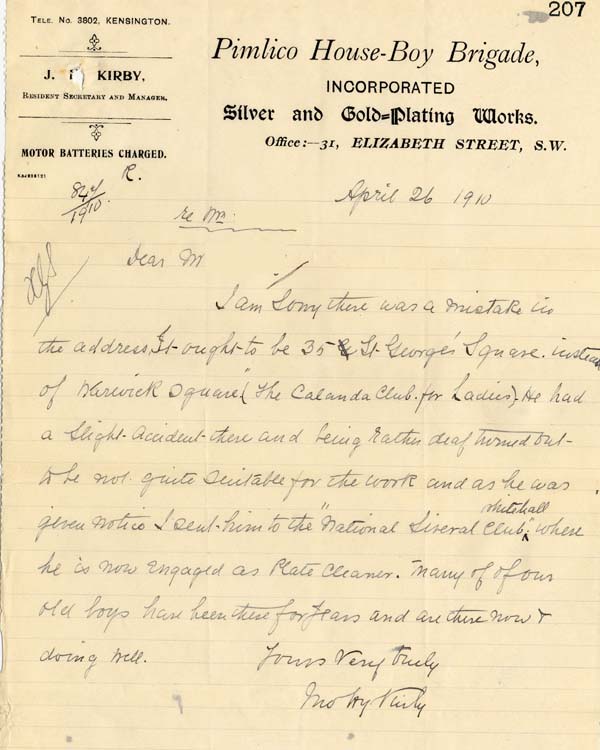 207
TELE. NO. 3802, KENSINGTON.
J. KIRBY,
RESIDENT SECRETARY AND MANAGER.
MOTOR BATTERIES CHARGED.
Pimlico House-Boy Brigade,
INCORPORATED
Silver and Gold=Plating Works.
Office:—31, ELIZABETH STREET, S.W.
R.
1910
April 26 1910
re Wm.
Dear Mr
I am Sorry there was a mistake in
the address. It ought to be 35 St. George's Square. instead
of Warwick Square (The Calanda Club. for Ladies). He had
a slight accident there and being rather deaf turned out
to be not quite suitable for the work and as he was
Whitehall
given notice I sent him to the "National Liveral Club", where
he is now engaged as Plate Cleaner. Many of of our
old boys have been there for years and are there now &
doing well.
Yours Very truly
Jno Hy Kirby